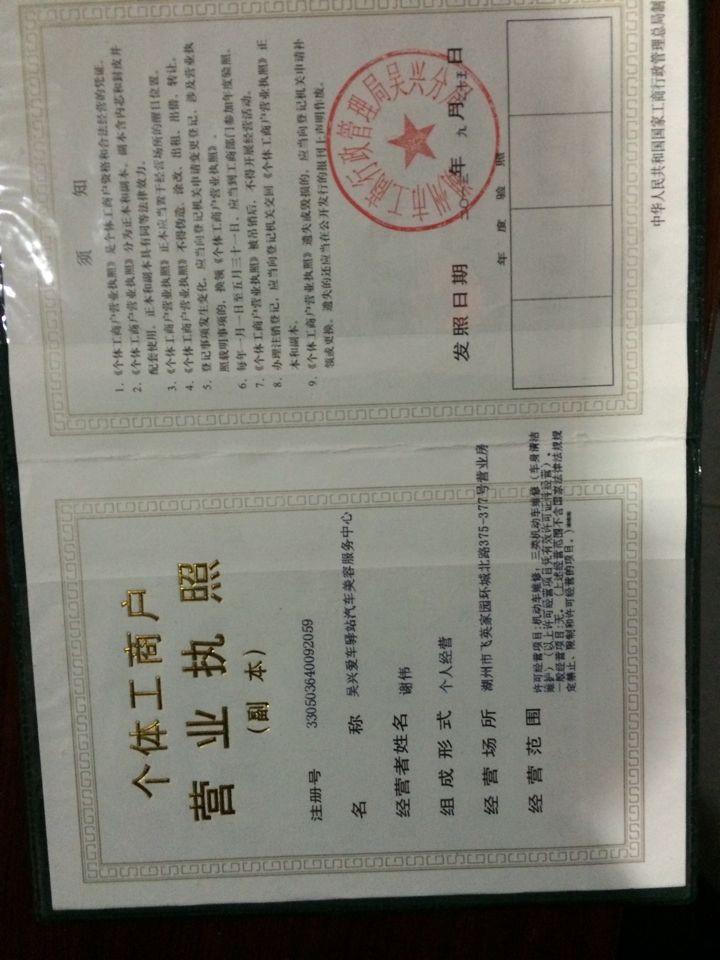 个体工商户
营业执照
（副 本）
注册号 330503640092059
名 称 吴兴爱车驿站汽车美容服务中心
经营者姓名 谢伟
组成形式 个人经营
经营场所 湖州市飞英家园环城北路375-377号营业房
经营范围 许可经营项目:机动车维修：三类机动车维修（车身清洁
维护）（以上许可经营项目凭有效许可证件经营）。
一般经营项目:无。（上述经营范围不含国家法律法规规
定禁止、限制和许可经营的项目。）
须 知
1. 《个体工商户营业执照》是个体工商户资格和合法经营的凭证。
2. 《个体工商户营业执照》分为正本和副本。副本含内芯和封皮并
配套使用，正本和副本具有同等法律效力。
3. 《个体工商户营业执照》正本应当置于经营场所的醒目位置。
4. 《个体工商户营业执照》不得伪造、涂改、出租、出借、转让。
5. 登记事项发生变化，应当向登记机关申请变更登记，涉及营业执
照载明事项的，换领《个体工商户营业执照》。
6. 每年一月一日至五月三十一日，应当到工商部门参加年度验照。
7. 《个体工商户营业执照》被吊销后，不得开展经营活动。
8. 办理注销登记，应当向登记机关交回《个体工商户营业执照》正
本和副本。
9. 《个体工商户营业执照》遗失或毁损的，应当向登记机关申请补
领或更换。遗失的还应当在公开发行的报刊上声明作废。
工商行政管理局吴兴分局
发照日期 年 九 月 日
年 度 验 照
中华人民共和国国家工商行政管理总局制